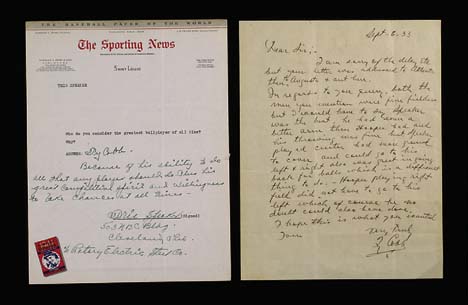 THE BASEBALL PAPER OF THE WORLD
The Sporting News
TRIS SPEAKER
Who do you consider the greatest ballplayer of all time?
Why?
ANSWER: Ty Cobb
Because of his ability to do
all that any player should do Plus his
great Competitive spirit and Willingness
to take chances at all times -
Tris Speaker (Signed)
503 N B C Bldg.
Cleveland, Ohio
% Rotary Electric Steel Co.
Sept. 33
Dear Sir:-
I am sorry of the delay etc
but your letter was addressed to
then to Augusta & out here.
In regards to your query, both the
men you mention were fine fielders
but I would have to say Speaker
was the best, he had
better arm than Hooper had and
his throwing was fine but Speaker
played center had more ground
to cover and could go to his
left & right also was great in going
back for balls which is a difficult
thing to do - Hooper playing right
field did not have to go to his
left which of course he no
doubt could also have done.
I hope this is what you wanted
Very Truly
Ty Cobb